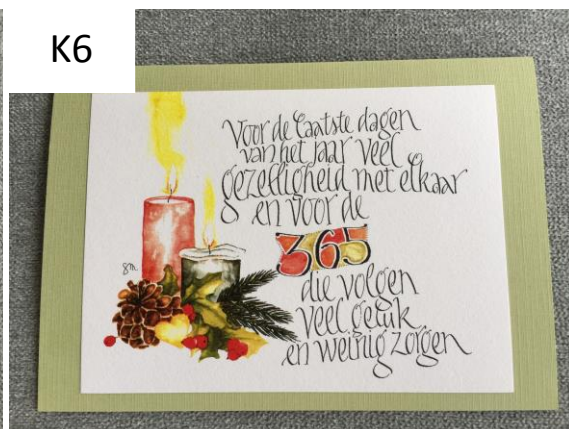 K6
Voor de laatste dagen
van het jaar veel
gezelligheid met elkaar
en voor de
365
die volgen
veel geluk
en weinig zorgen